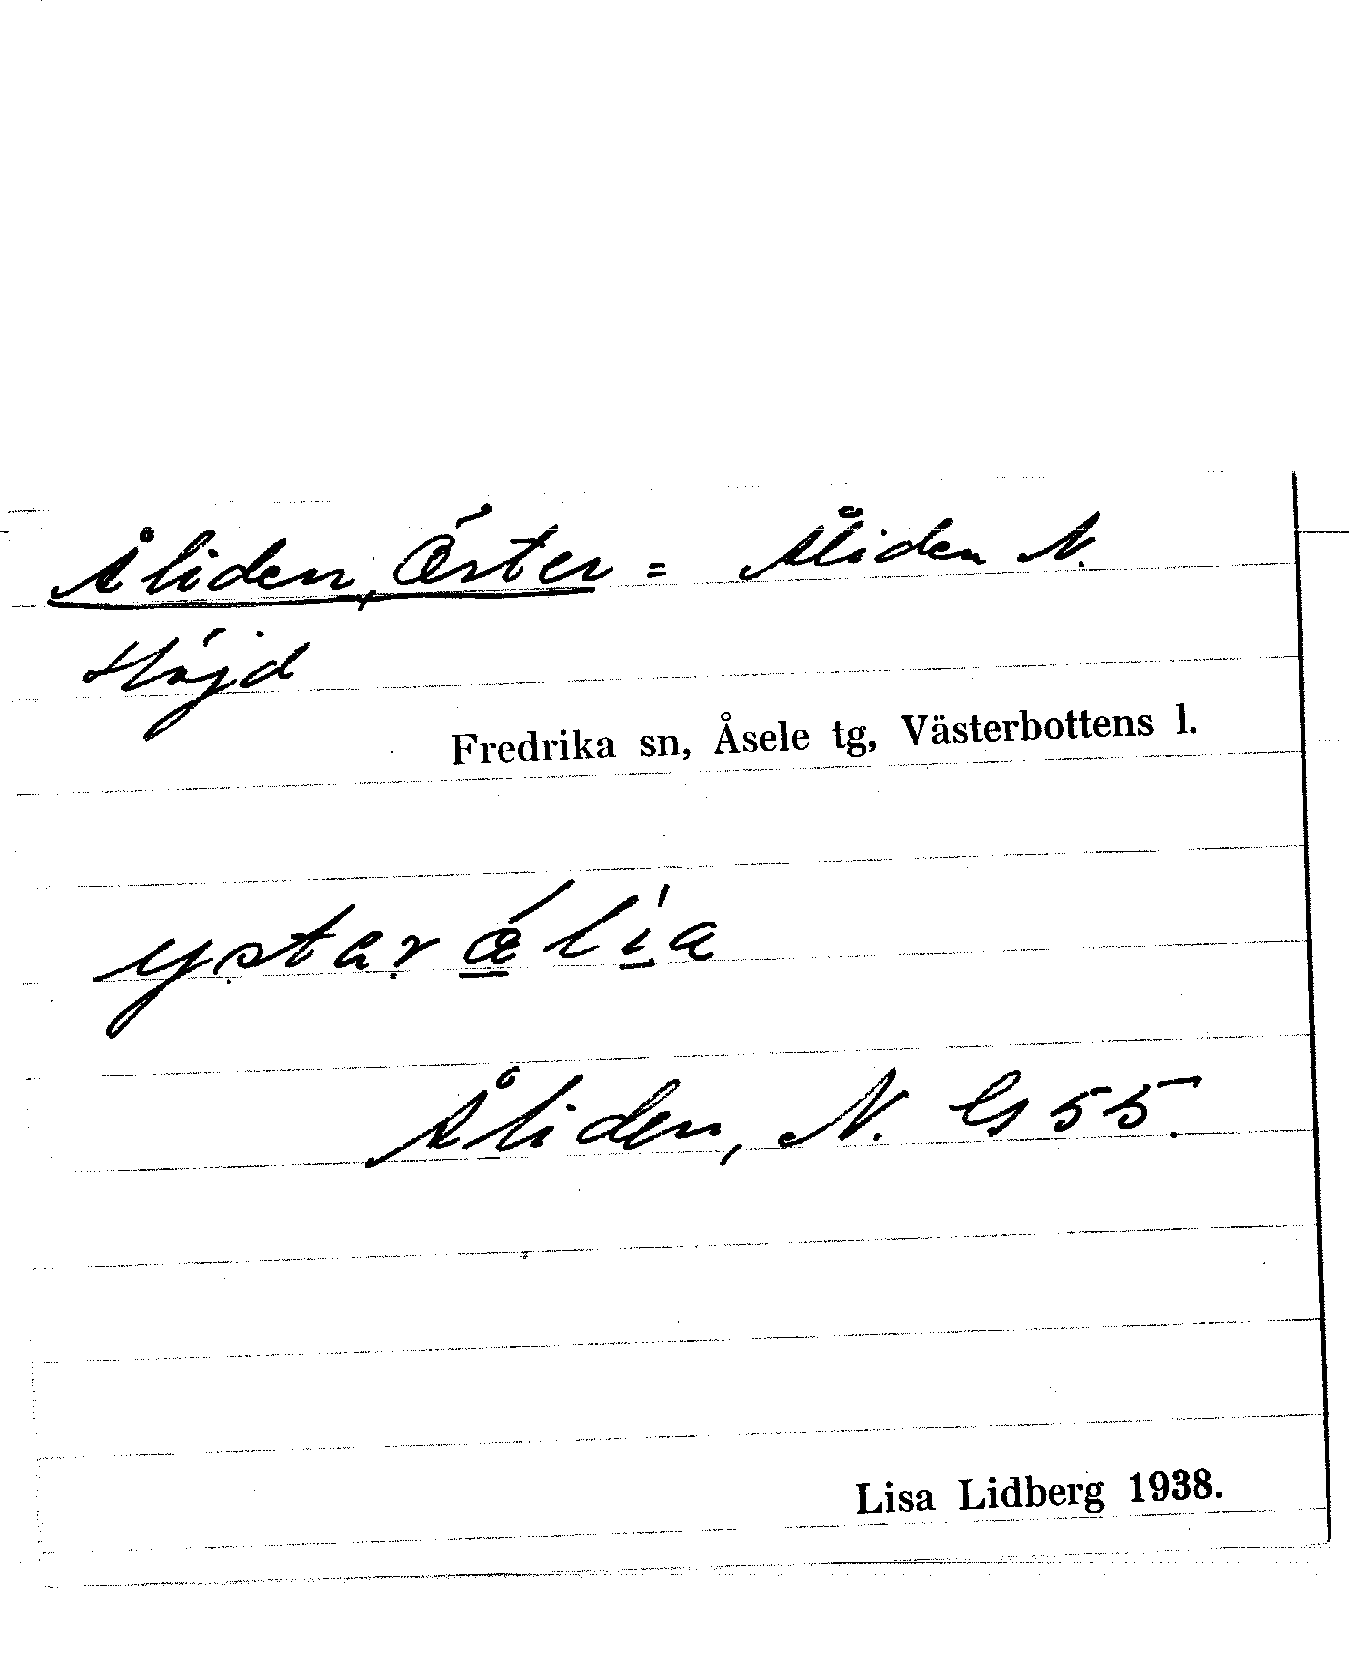 Åliden, Öster = Åliden N.
Höjd
Fredrika sn, Åsele tg, Västerbottens l.
ystar ǻlia
Åliden, N. G 55.
Lisa Lidberg 1938.